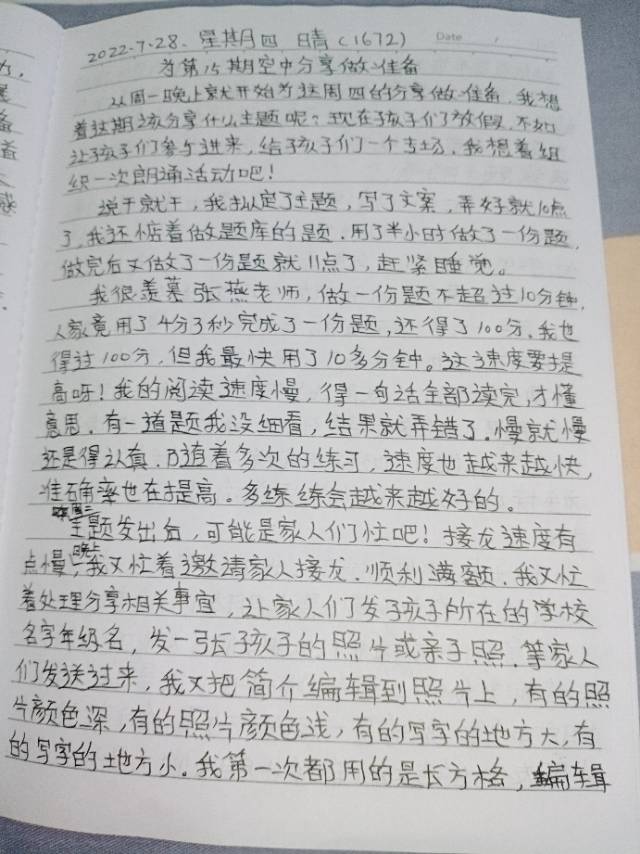 2022.7.28. 星期四 晴(1672) Date
为第15期空中分享做准备
从周一晚上就开始为这周四的分享做准备,我想
着这期该分享什么主题呢?现在孩子们放假,不如
让孩子们参与进来,给孩子们一个专场,我想着组
织一次朗诵活动吧!
说干就干,我拟定了主题,写了文案,弄好就10点
了,我还惦着做题库的题.用了半小时做了一份题,
做完后又做了一份题就11点了,赶紧睡觉。
我很羡慕张燕老师,做一份题不超过10分钟,
人家竟用了4分3秒完成了一份题,还得了100分,我也
得过100分,但我最快用了10多分钟。这速度要提
高呀!我的阅读速度慢,得一句话全部读完,才懂
意思.有一道题我没细看,结果就弄错了.慢就慢
还是得认真.随着多次的练习,速度也越来越快,
准确率也在提高。多练练会越来越好的。
周三
主题发出后,可能是家人们忙吧!接龙速度有
晚上
点慢,我又忙着邀请家人接龙.顺利满额.我又忙
着处理分享相关事宜,让家人们发孩子所在的学校
名字年级名,发一张孩子的照片或亲子照.等家人
们发送过来,我又把简介编辑到照片上,有的照
片颜色深,有的照片颜色浅,有的写字的地方大,有
的写字的地方小.我第一次都用的是长方格,编辑